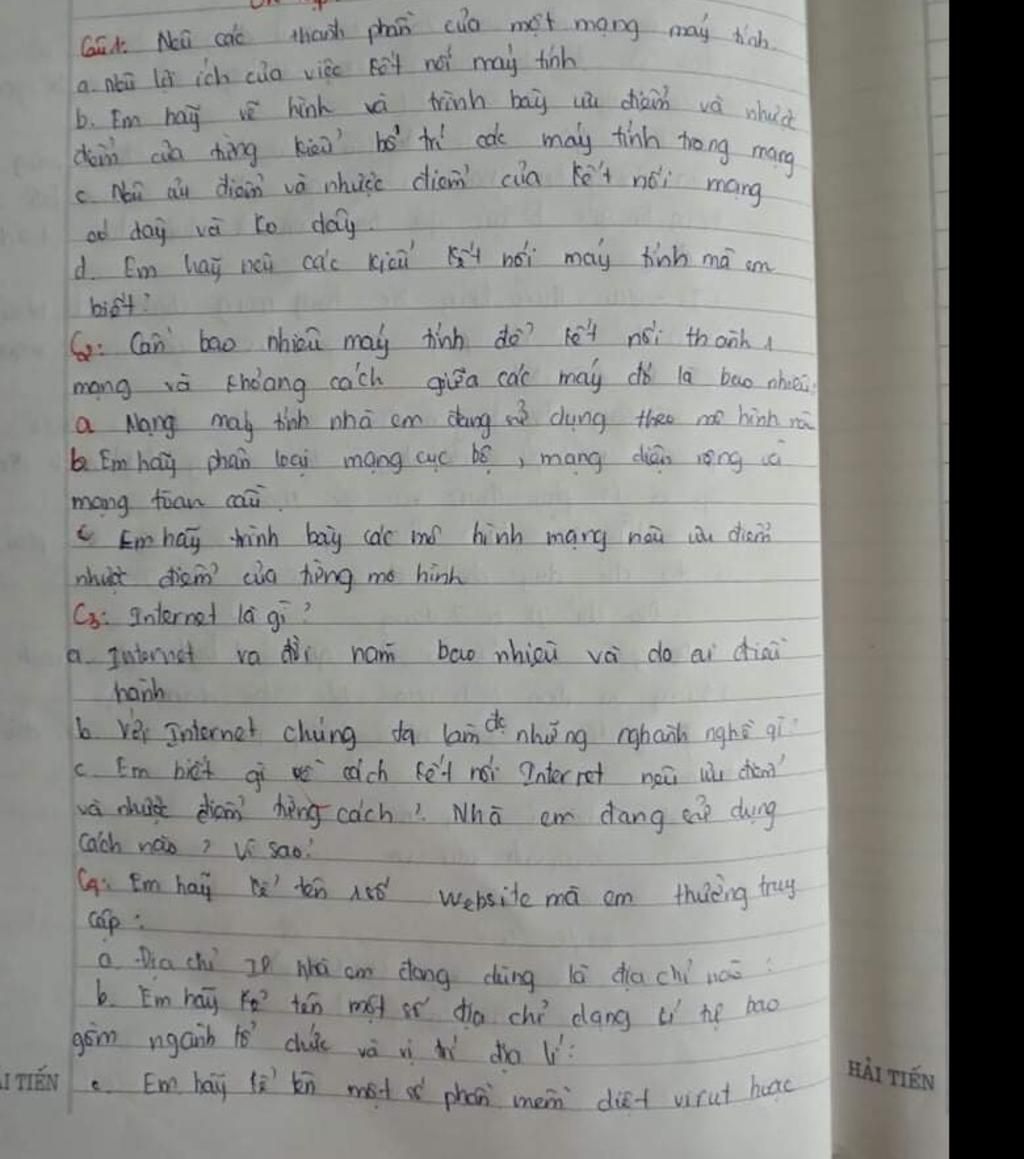 Câu 1: Nêu các thành phần của một mạng máy tính.
a. nêu lợi ích của việc kết nối máy tính
b. Em hãy vẽ hình và trình bày ưu điểm và nhược
điểm của từng kiểu bố trí các máy tính trong mạng
c. Nêu ưu điểm và nhược điểm của kết nối mạng
có dây và ko dây.
d. Em hãy nêu các kiểu kết nối máy tính mà em
biết?
C2: Cần bao nhiêu máy tính để kết nối thành 1
mạng và khoảng cách giữa các máy đó là bao nhiêu?
a Mạng máy tính nhà em đang sử dụng theo mô hình nào
b Em hãy phân loại mạng cục bộ, mạng diện rộng và
mạng toàn cầu.
c Em hãy trình bày các mô hình mạng nêu ưu điểm
nhược điểm của từng mô hình
C3: Internet là gì?
a. Internet ra đời năm bao nhiêu và do ai điều
hành
b. Với Internet chúng ta làm đc những nghành nghề gì?
c. Em biết gì về cách kết nối Internet nêu ưu điểm
và nhược điểm từng cách? Nhà em đang sử dụng
cách nào? Vì sao?
C4: Em hãy kể tên 1 số website mà em thường truy
cập:
a. Địa chỉ IP nhà em đang dùng là địa chỉ nào?
b. Em hãy kể tên một số địa chỉ dạng kí tự bao
gồm ngành tổ chức và vị trí địa lí:
c. Em hãy kể tên một số phần mềm diệt virut hoặc
I TIẾN
HẢI TIẾN